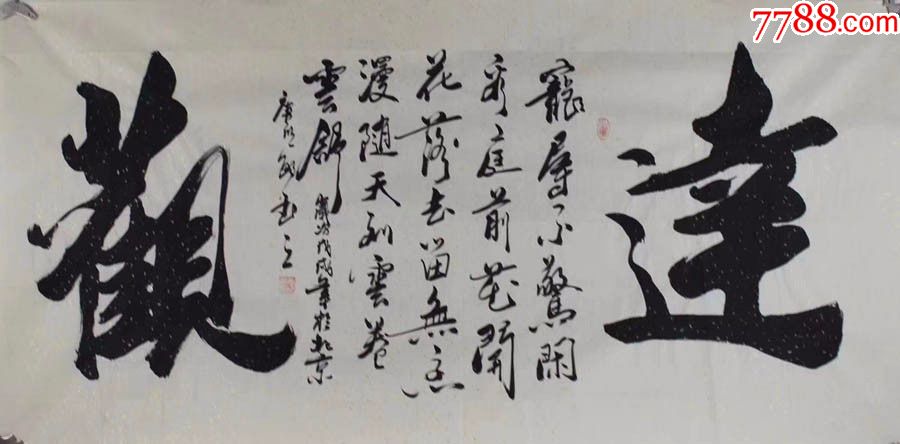 7788.com
達
寵辱不驚閑
看庭前花開
花落去留無意
漫随天外雲卷
雲舒 歲次戊戌年於北京
書之
觀